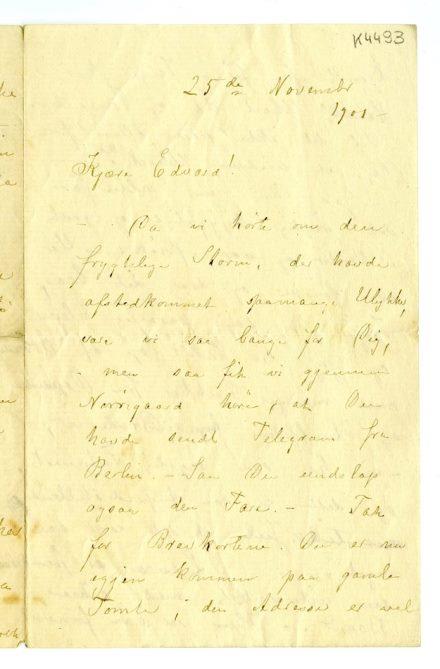 K4493
25de Novembr
1901 -
Kjære Edvard!
- Da vi hörte om den
frygtelige Storm, der havde
afstedkommet saamange Ulykker,
vare vi saa bange for Dig,
- men saa fik vi gjennem
Nörregaard höre, at Du
havde sendt Telegram fra
Berlin. - Saa Du undslap
ogsaa den Fare. - Tak
for Brevkortene. Du er nu
igjen kommen paa gamle
Tomter; den Adresse er vel